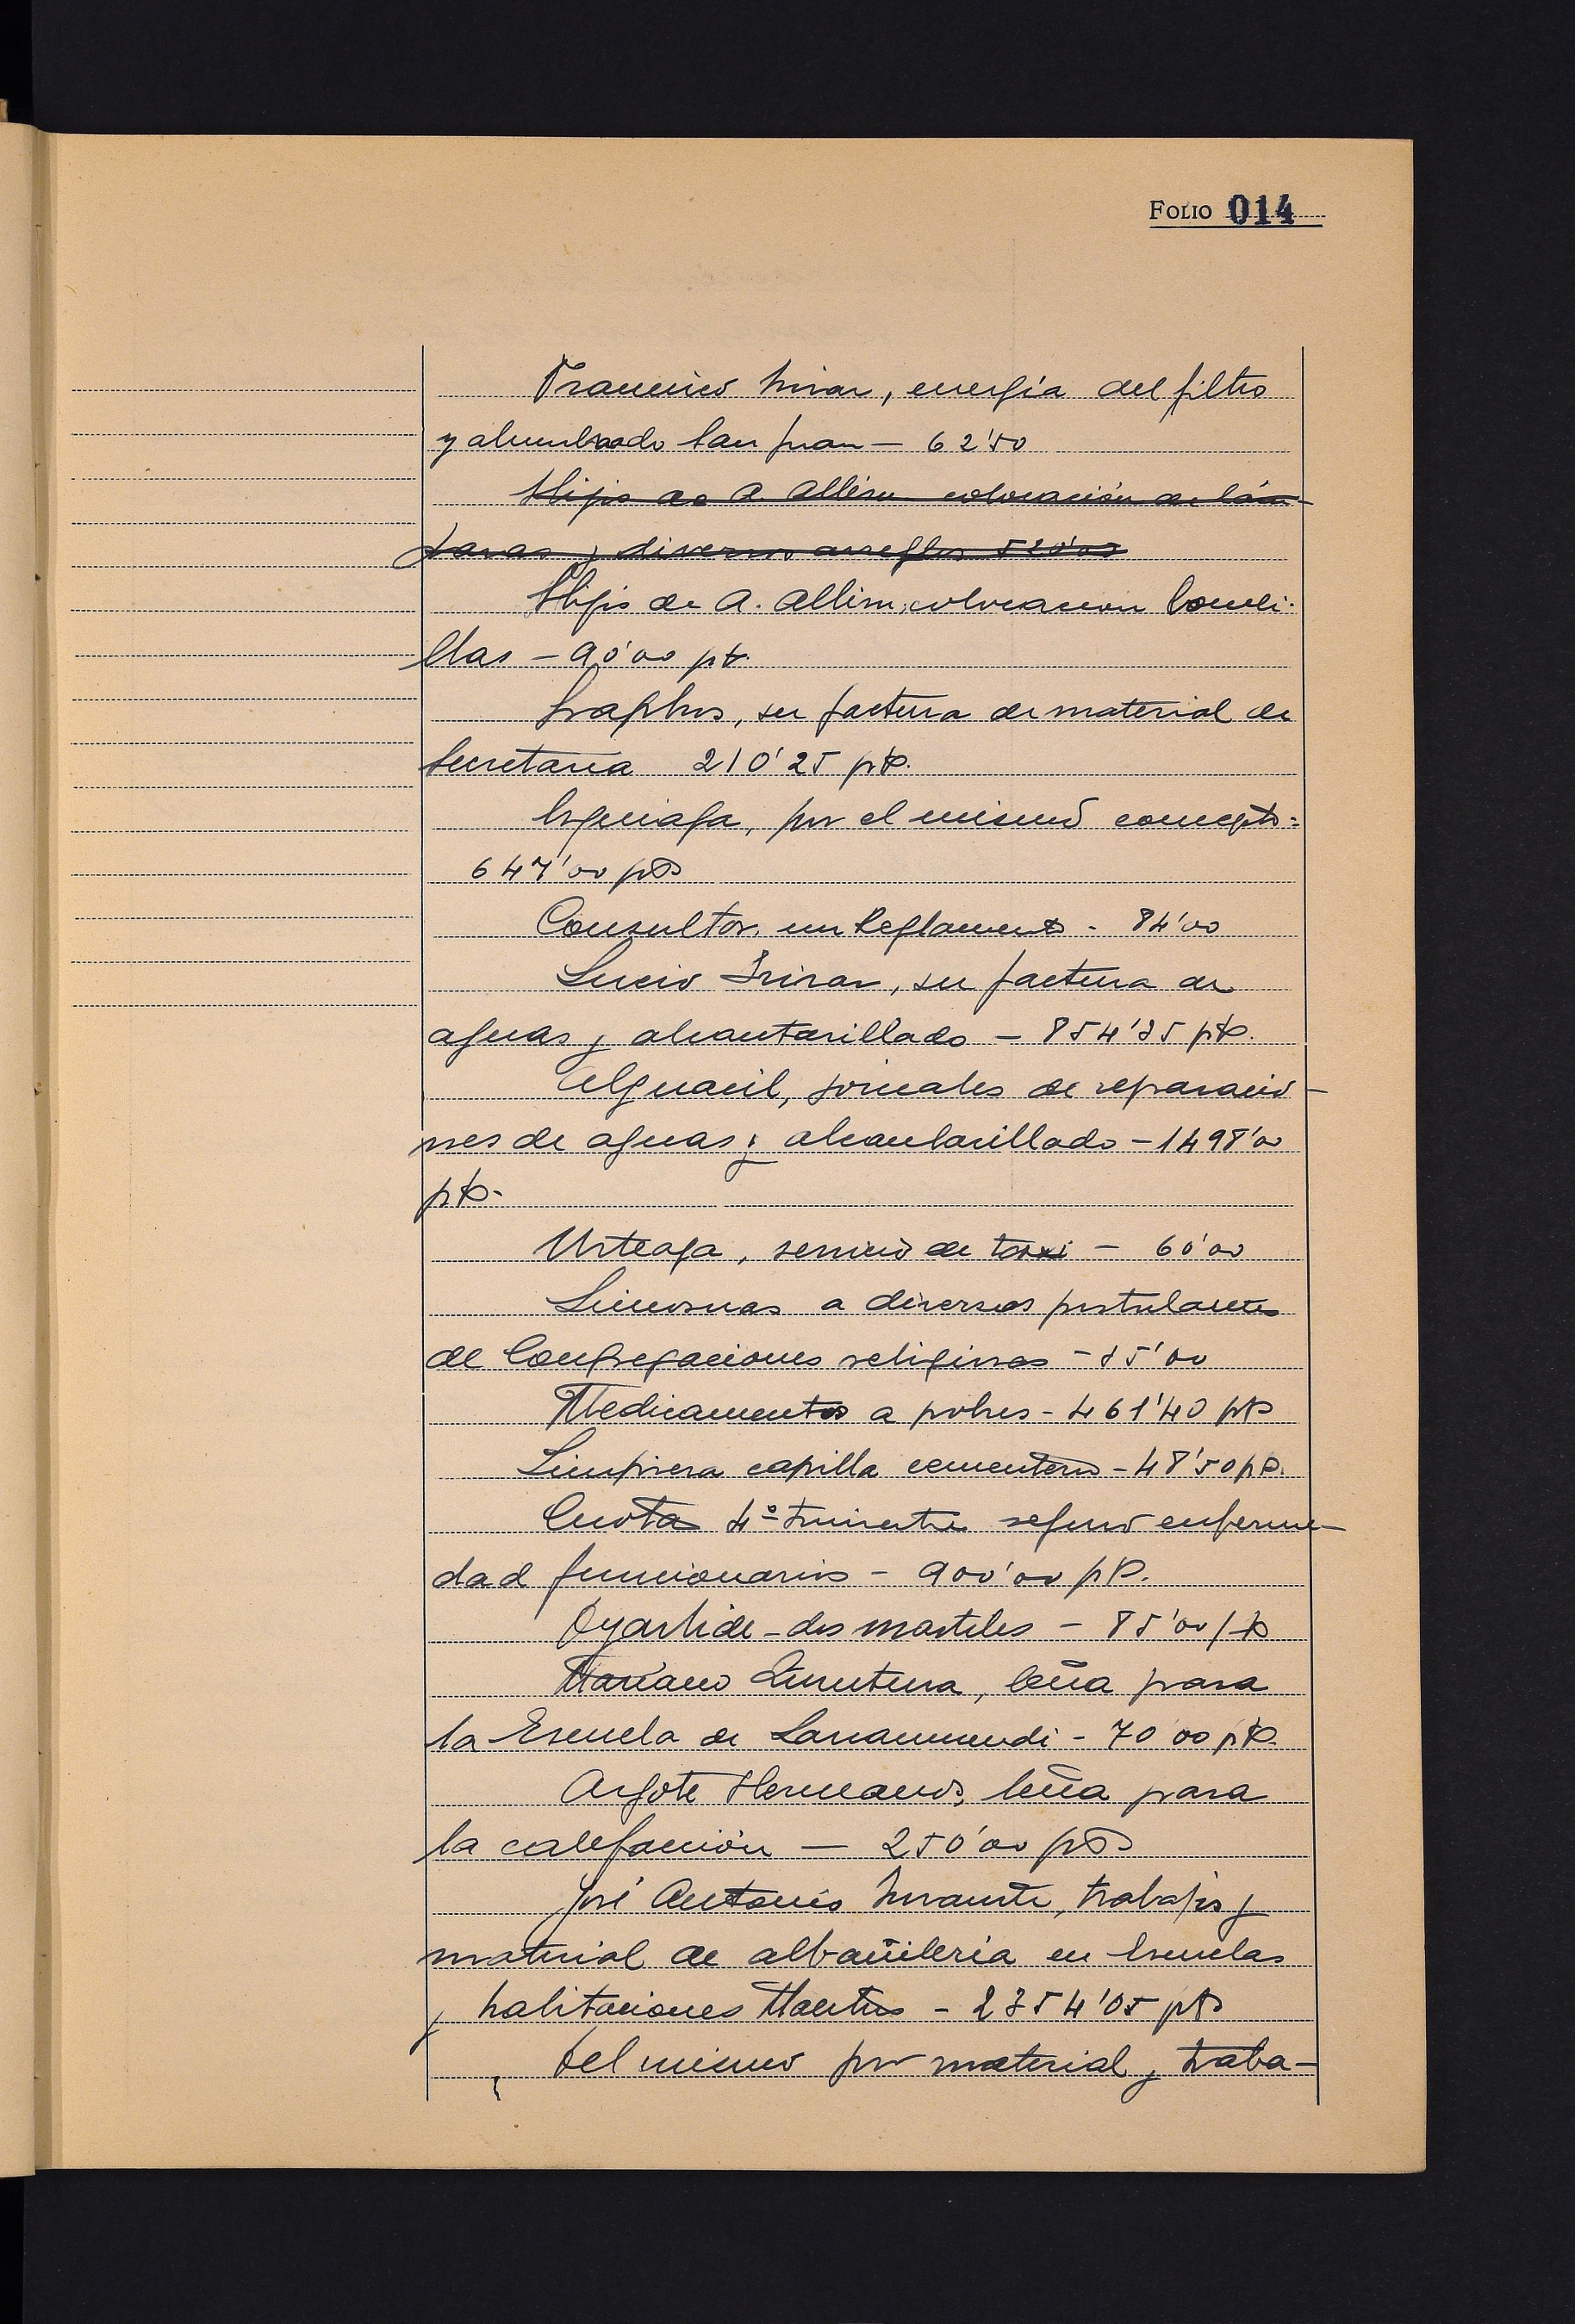 FOLIO 014
Francisco Irizar, energía del filtro
y alumbrado San Juan — 62'50
Hijos de A. Allisu colocación de lám-
paras y diversos arreglos 520'00
Hijos de A. Allisu, colocacion bombi-
llas — 90'00 pts.
Graphos, su factura de material de
Secretaria 210'25 pts.
Izquiaga, por el mismo concepto =
647'00 pts
Consultor, un Reglamento - 84'00
Lucio Irizar, su factura de
aguas y alcantarillado — 854'35 pts.
Alguacil, jornales de reparacio-
nes de aguas y alcantarillado — 1498'00
pts.
Urteaga, servicio de taxi — 60'00
Limosnas a diversos postulantes
de Congregaciones religiosas — 85'00
Medicamentos a pobres - 461'40 pts
Limpieza capilla cementerio - 48'50 pts.
Cuota 4º trimestre seguro enferme-
dad funcionarios — 900'00 pts.
Oyarbide - dos marteles — 85'00 pts
Mariano Zurutuza, leña para
la Escuela de Larramendi - 70'00 pts.
Argote Hermanos, leña para
la calefacción — 250'00 pts
José Antonio, trabajos y
material de albañileria en Escuelas
y habitaciones Maestros - 2354'05 pts
Del mismo por material y traba-